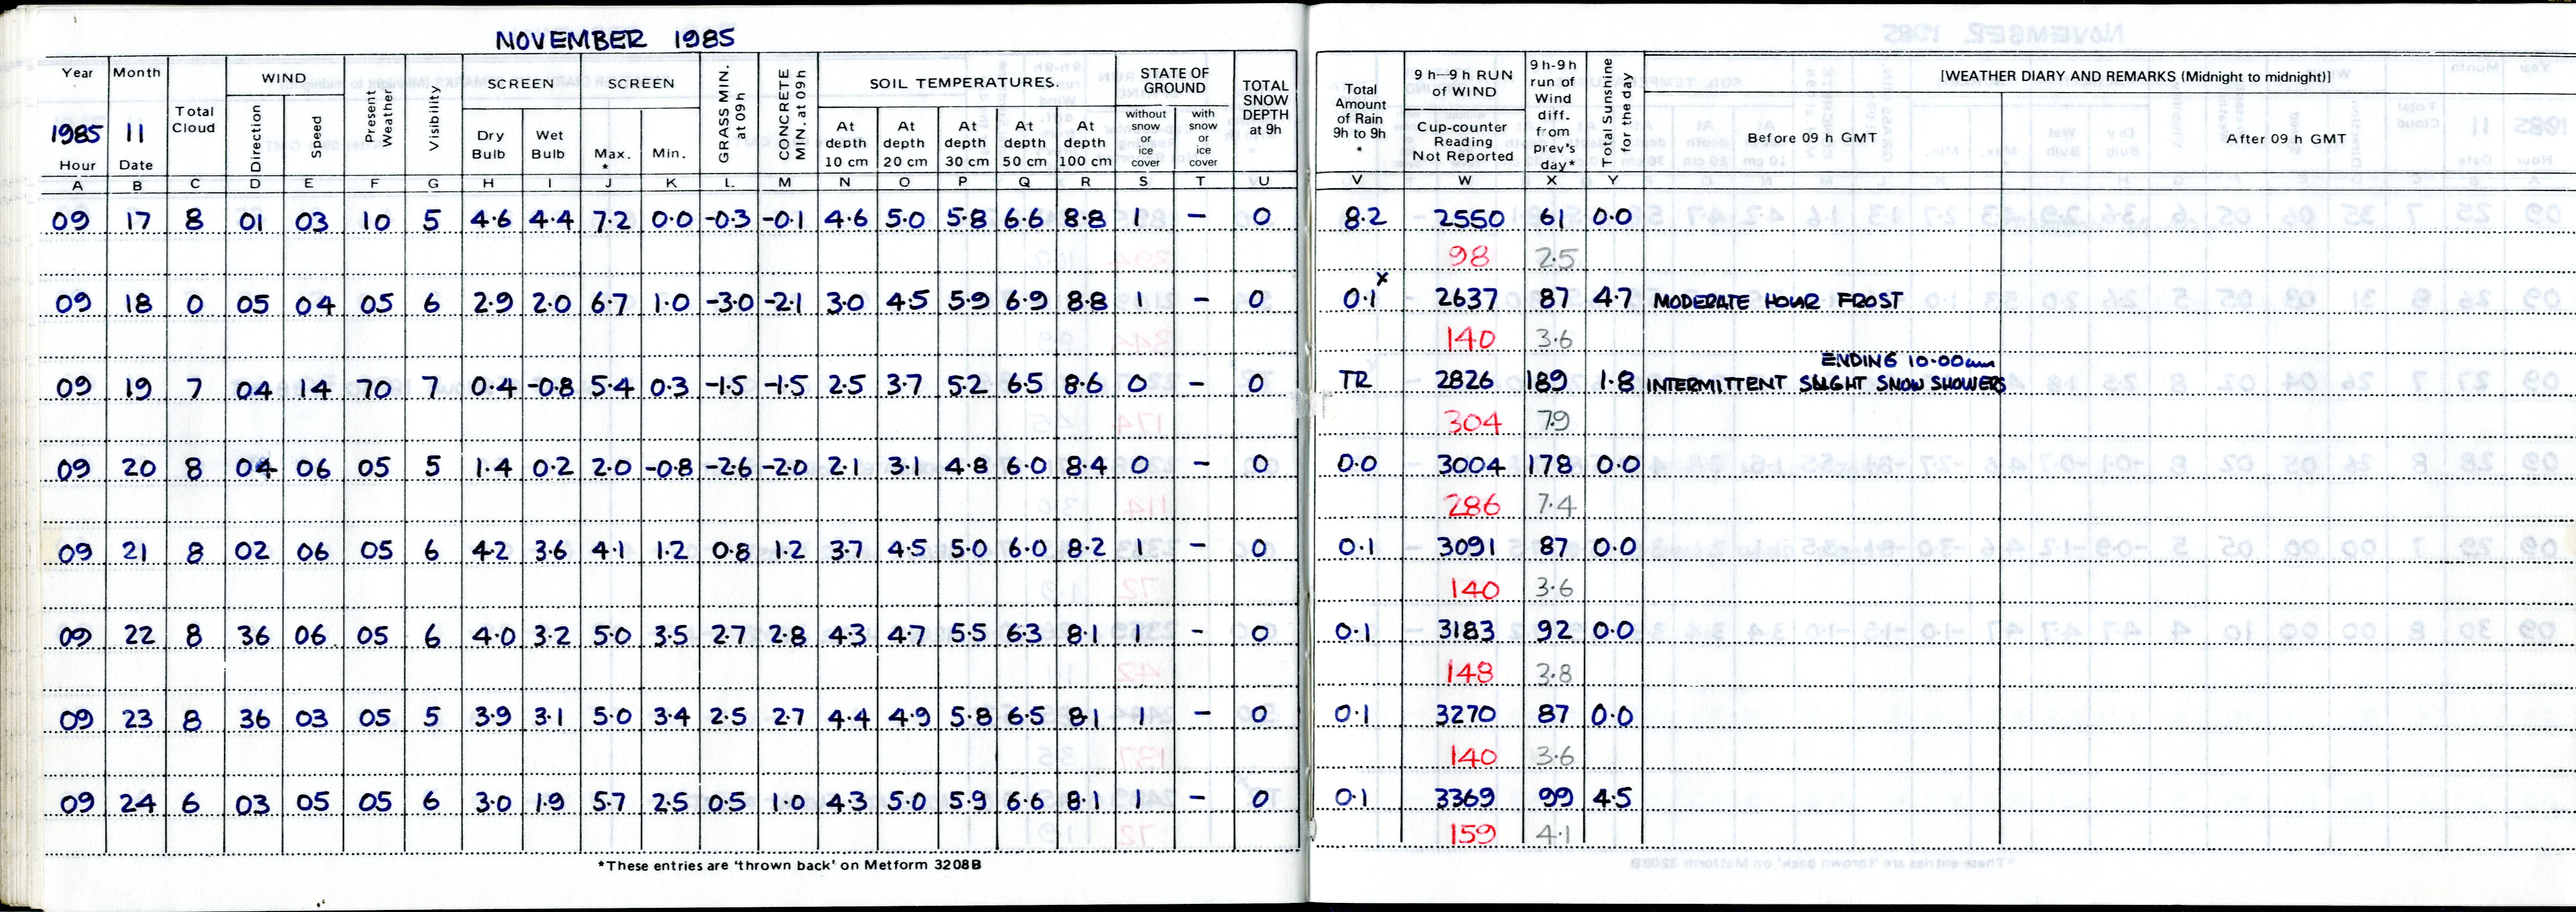 NOVEMBER 1985
Year Month Total Cloud WIND Present Weather Visibility SCREEN SCREEN GRASS MIN. at 09 h CONCRETE MIN. at 09 h SOIL TEMPERATURES. STATE OF GROUND TOTAL SNOW DEPTH at 9h Total Amount of Rain 9h to 9h * 9 h—9 h RUN of WIND 9 h-9 h run of Wind diff. from prev's day* Total Sunshine for the day [WEATHER DIARY AND REMARKS (Midnight to midnight)]
1985 11 Direction Speed Dry Bulb Wet Bulb Max. * Min. At depth 10 cm At depth 20 cm At depth 30 cm At depth 50 cm At depth 100 cm without snow or ice cover with snow or ice cover Cup-counter Reading Not Reported Before 09 h GMT After 09 h GMT
Hour Date
A B C D E F G H I J K L M N O P Q R S T U V W X Y
09 17 8 01 03 10 5 4.6 4.4 7.2 0.0 -0.3 -0.1 4.6 5.0 5.8 6.6 8.8 1 – 0 8.2 2550 61 0.0
98 2.5
09 18 0 05 04 05 6 2.9 2.0 6.7 1.0 -3.0 -2.1 3.0 4.5 5.9 6.9 8.8 1 – 0 0.1 x 2637 87 4.7 MODERATE HOUR FROST
140 3.6
ENDING 10.00am
09 19 7 04 14 70 7 0.4 -0.8 5.4 0.3 -1.5 -1.5 2.5 3.7 5.2 6.5 8.6 0 – 0 TR 2826 189 1.8 INTERMITTENT SLIGHT SNOW SHOWERS
304 7.9
09 20 8 04 06 05 5 1.4 0.2 2.0 -0.8 -2.6 -2.0 2.1 3.1 4.8 6.0 8.4 0 – 0 0.0 3004 178 0.0
286 7.4
09 21 8 02 06 05 6 4.2 3.6 4.1 1.2 0.8 1.2 3.7 4.5 5.0 6.0 8.2 1 – 0 0.1 3091 87 0.0
140 3.6
09 22 8 36 06 05 6 4.0 3.2 5.0 3.5 2.7 2.8 4.3 4.7 5.5 6.3 8.1 1 – 0 0.1 3183 92 0.0
148 3.8
09 23 8 36 03 05 5 3.9 3.1 5.0 3.4 2.5 2.7 4.4 4.9 5.8 6.5 8.1 1 – 0 0.1 3270 87 0.0
140 3.6
09 24 6 03 05 05 6 3.0 1.9 5.7 2.5 0.5 1.0 4.3 5.0 5.9 6.6 8.1 1 – 0 0.1 3369 99 4.5
159 4.1
*These entries are 'thrown back' on Metform 3208B